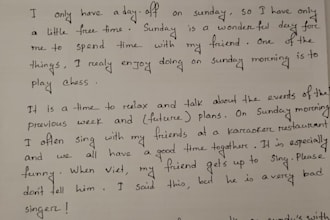 I only have a day-off on sunday. so I have only
a little free time. Sunday is a wonderful day for
me to spend time with my friend. One of the
things, I realy enjoy doing on sunday morning is to
play chess.
It is a time to relax and talk about the events of the
previous week and (future) plans. On Sunday morning
I often sing with my friends at a karaoker restaurant
and we all have a good time together. It is especially
funny. When Viet, my friend gets up to sing. Please,
don't tell him. I said this, but he is a very bad
singer!